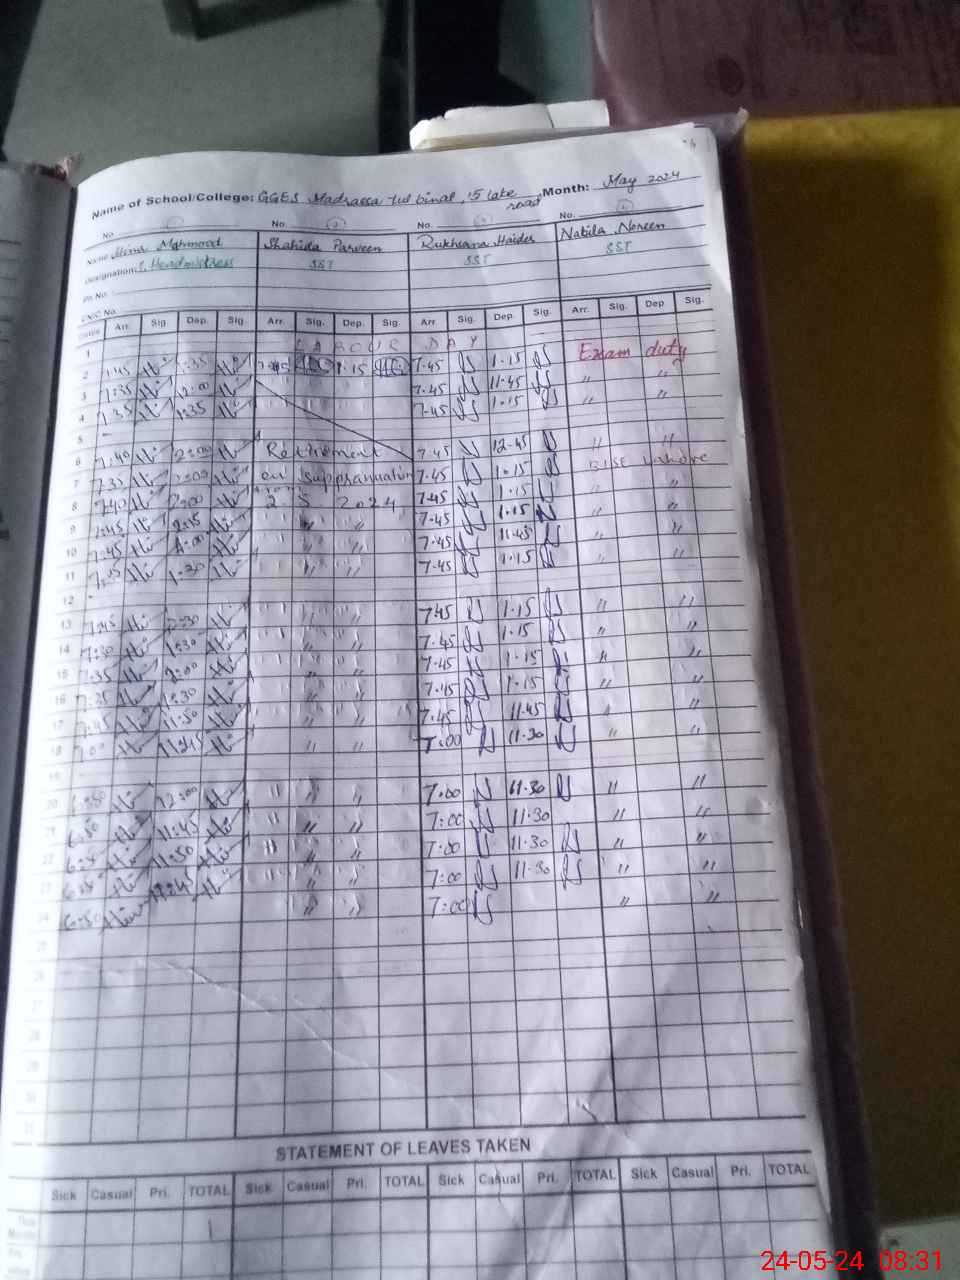 Name of School/College: GGES Madrassa tul binat, 15 lake road Month: May 2024
No. 1 No. 2 No. 3 No. 4
Name Hina Mahmood Shahida Parveen Rukhsana Haider Nabila Noreen
Designation: S. Headmistress SST SST SST
Ph No.
CNIC No.
Dates Arr. Sig. Dep. Sig. Arr. Sig. Dep. Sig. Arr. Sig. Dep. Sig. Arr. Sig. Dep. Sig.
1 LABOUR DAY
2 1:35 1.15 7.45 1.15 Exam duty
3 7:35 12:00 7.45 11.45 " "
4 7.35 1:35 7.45 1.15 " "
5
6 7:40 2:00 Retirement 7.45 12.45 " "
7 7:35 2:00 on suppranuation 7.45 1.15 BISE Lahore
8 7:40 2:00 2 5 2024 7.45 1.15 "
9 7:45 2:15 " " 7.45 1.15 " "
10 7:45 " " 7.45 11.45 " "
11 7:35 1:30 " " 7.45 1.15 " "
12
13 7:45 2:30 " " 7.45 1.15 " "
14 7:30 1:30 " " 7.45 1.15 " "
15 7:35 2:00 " " 7.45 1.15 " "
16 7:35 1:30 " " 7.45 1.15 " "
17 7:45 11:50 " " 7.45 11.45 " "
18 7:00 11:45 " " 7:00 11.30 " "
19
20 6:50 12:00 " " " 7.00 11.30 " "
21 6:50 11:45 " " " 7:00 11.30 " "
22 11:50 " " " 7:00 11.30 " "
23 11:45 " " 7:00 11.30 " "
24 6:50 " " 7:00 " "
25
26
27
28
29
30
31
STATEMENT OF LEAVES TAKEN
Sick Casual Pri. TOTAL Sick Casual Pri. TOTAL Sick Casual Pri. TOTAL Sick Casual Pri. TOTAL
This Month 1
24-05-24 08:31